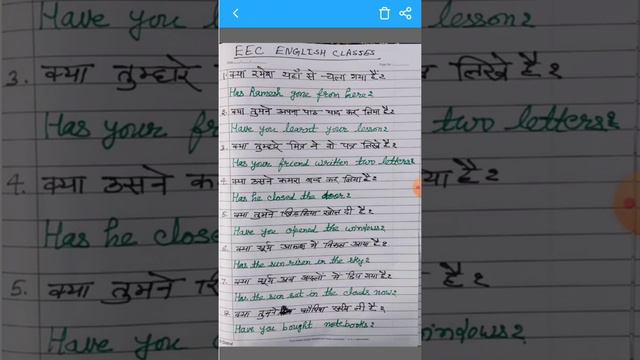 EEC ENGLISH CLASSES
1. क्या रमेश यहाँ से चला गया है?
Has Ramesh gone from here?
2. क्या तुमने अपना पाठ याद कर लिया है?
Have you learnt your lesson?
3. क्या तुम्हारे मित्र ने दो पत्र लिखे है?
Has your friend written two letters?
4. क्या उसने कमरा बन्द कर लिया है?
Has he closed the door?
5. क्या तुमने खिड़कियां खोल दी है?
Have you opened the windows?
6. क्या सूर्य आकाश में निकल आया है?
Has the sun risen in the sky?
7. क्या सूर्य अब बादलों में छिप गया है?
Has the sun set in the clods now?
8. क्या तुमने कॉपियां खरीद ली है?
Have you bought notebooks?
Have you
lesson?
3. क्या तुम्हारे
लिखे है?
Has your
two letters?
4. क्या उसने क
या है?
Has he close
5. क्या तुमने
है?
Have you
windows?